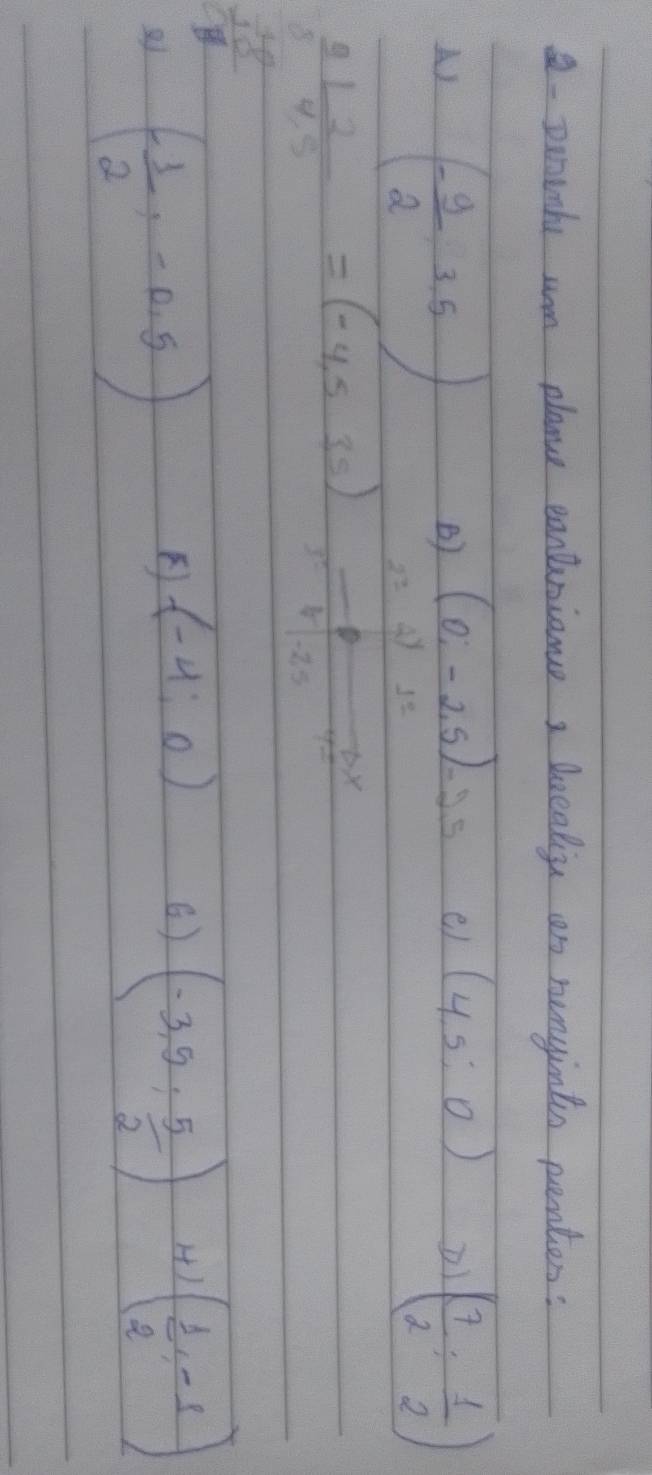 2- Desenhe um plano cartesiano e localize os seguintes pontos:
A) (-9/2, 3,5) B) (0; -2,5) -2,5 C) (4,5; 0) D) (7/2; 1/2)
2º y 1º
9 | 2 = (-4,5 3,5) x
8 4,5 3º 4º
-2,5
10
e) (-1/2, -0,5) F) (-4; 0) G) (-3,5; 5/2) H) (1/2; -1)